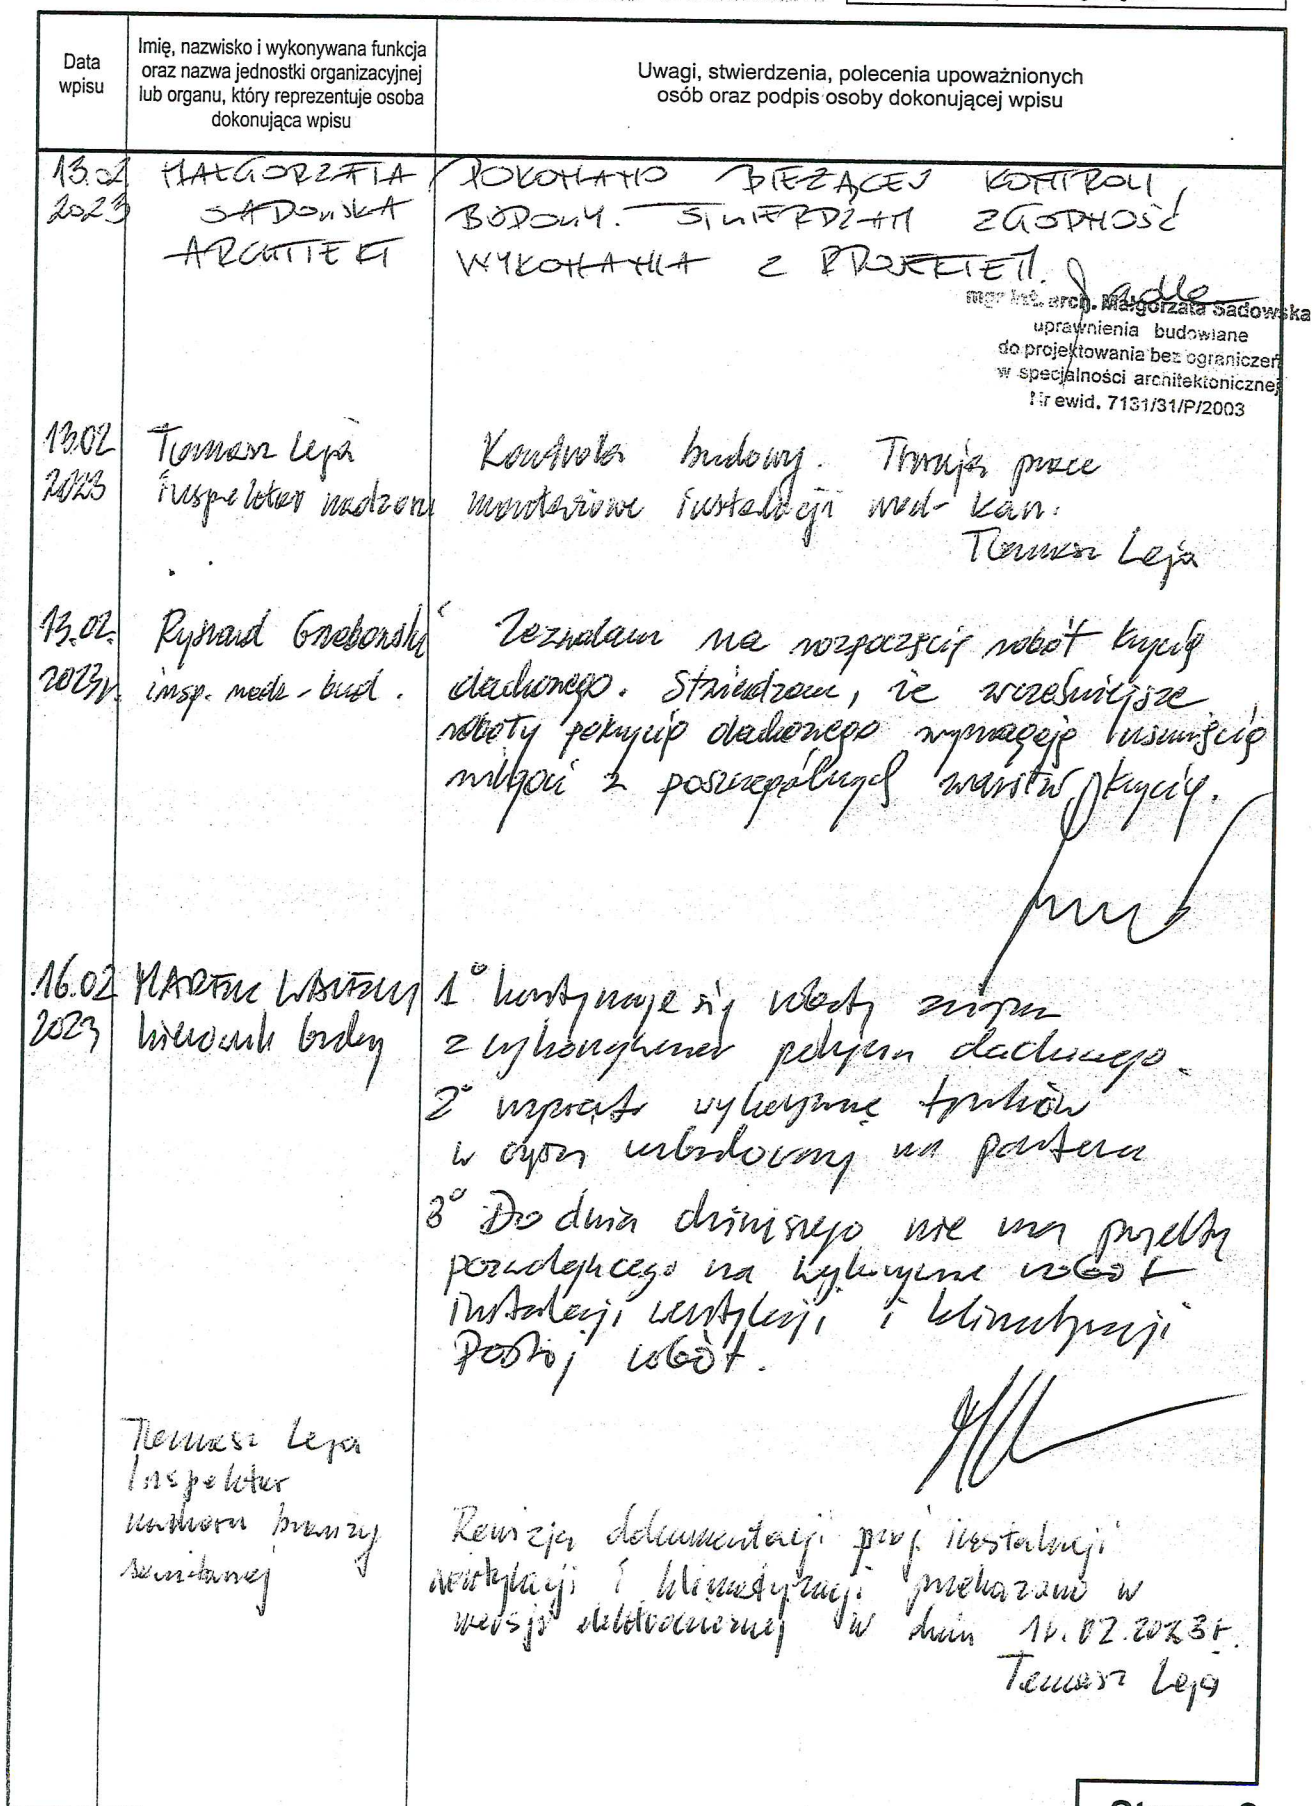 Data
wpisu
Imię, nazwisko i wykonywana funkcja
oraz nazwa jednostki organizacyjnej
lub organu, który reprezentuje osoba
dokonująca wpisu
Uwagi, stwierdzenia, polecenia upoważnionych
osób oraz podpis osoby dokonującej wpisu
13.02
2023
MAŁGORZATA
SADOWSKA
ARCHITEKT
DOKONANO BIEŻĄCEJ KONTROLI
BUDOWY. STWIERDZAM ZGODNOŚĆ
WYKONANIA Z PROJEKTEM.
mgr inż. arch. Małgorzata Sadowska
uprawnienia budowlane
do projektowania bez ograniczeń
w specjalności architektonicznej
Nr ewid. 7131/31/P/2003
13.02
2023
Tomasz Leja
inspektor nadzoru
Kontrola budowy. Trwają prace
montażowe instalacji wod-kan.
Tomasz Leja
13.02.
2023r.
Ryszard Grabowski
insp. nadz. bud.
Zezwalam na rozpoczęcie robót krycia
dachowego. Stwierdzam, że wcześniejsze
roboty pokrycia dachowego wymagają usunięcia
wilgoci z poszczególnych warstw krycia.
16.02
2023
MAREK
kierownik budowy
1° kontynuuje się roboty
z wykonywaniem pokrycia dachowego.
2° wykonywanie tynków
w części na parterze
3° Do dnia dzisiejszego nie ma projektu
pozwalającego na wykonywanie robót
instalacji wentylacji i klimatyzacji
Postój robót.
Tomasz Leja
Inspektor
nadzoru branży
sanitarnej
Rewizja dokumentacji proj. instalacji
wentylacji i klimatyzacji przekazano w
wersji elektronicznej w dniu 16.02.2023r.
Tomasz Leja